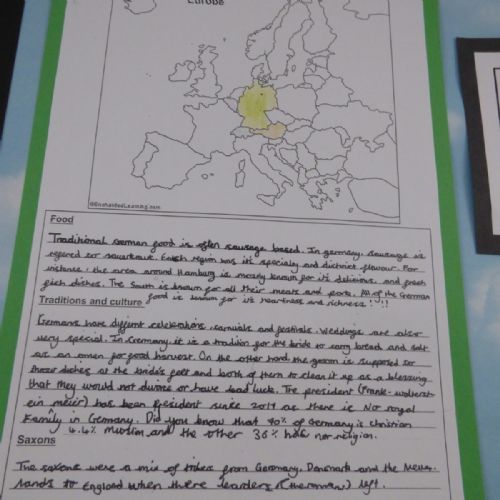 Europe
©EnchantedLearning.com
Food
Traditional German food is often sausage based. In germany, sausage is
refered to saurkraut. Each region has its specialty and district flavour. For
instance, the area around Hamburg is mainly known for its delicious and fresh
fish dishes. The South is known for all their meats and pork. All of the German
food is known for its heartiness and richness!!!
Traditions and culture
Germans have different celebrations, carnivals and festivals. Weddings are also
very special. In Germany, it is a tradition for the bride to carry bread and salt
as an omen for good harvest. On the other hand the groom is supposed to
throw dishes at the bride's feet and both of them to clean it up as a blessing
that they would not divorce or have bad luck. The president (Frank-
) has been president since 2017 as there is NO royal
family in Germany. Did you know that % of Germany is christian
4.4% muslim and the other 36% have no religion.
Saxons
The saxons were a mix of tribes from Germany, Denmark and the
lands to England when there leaders (the romans) left.